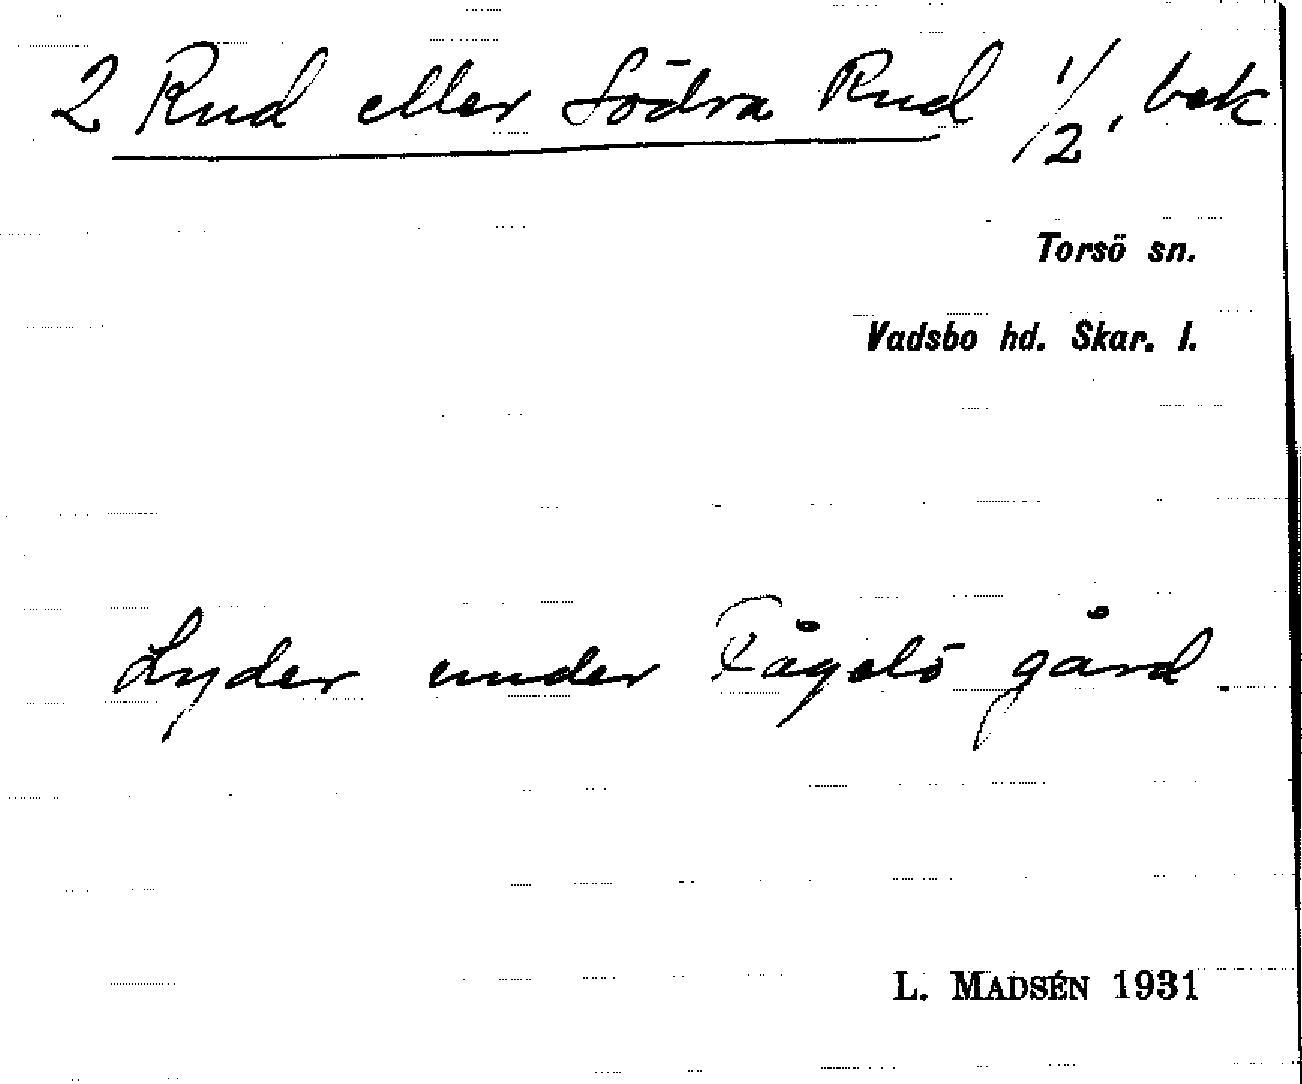 2 Rud eller Södra Rud 1/2, bok
Torsö sn.
Vadsbo hd. Skar. l.
Lyder under Fågelö gård.
L. MADSÉN 1931